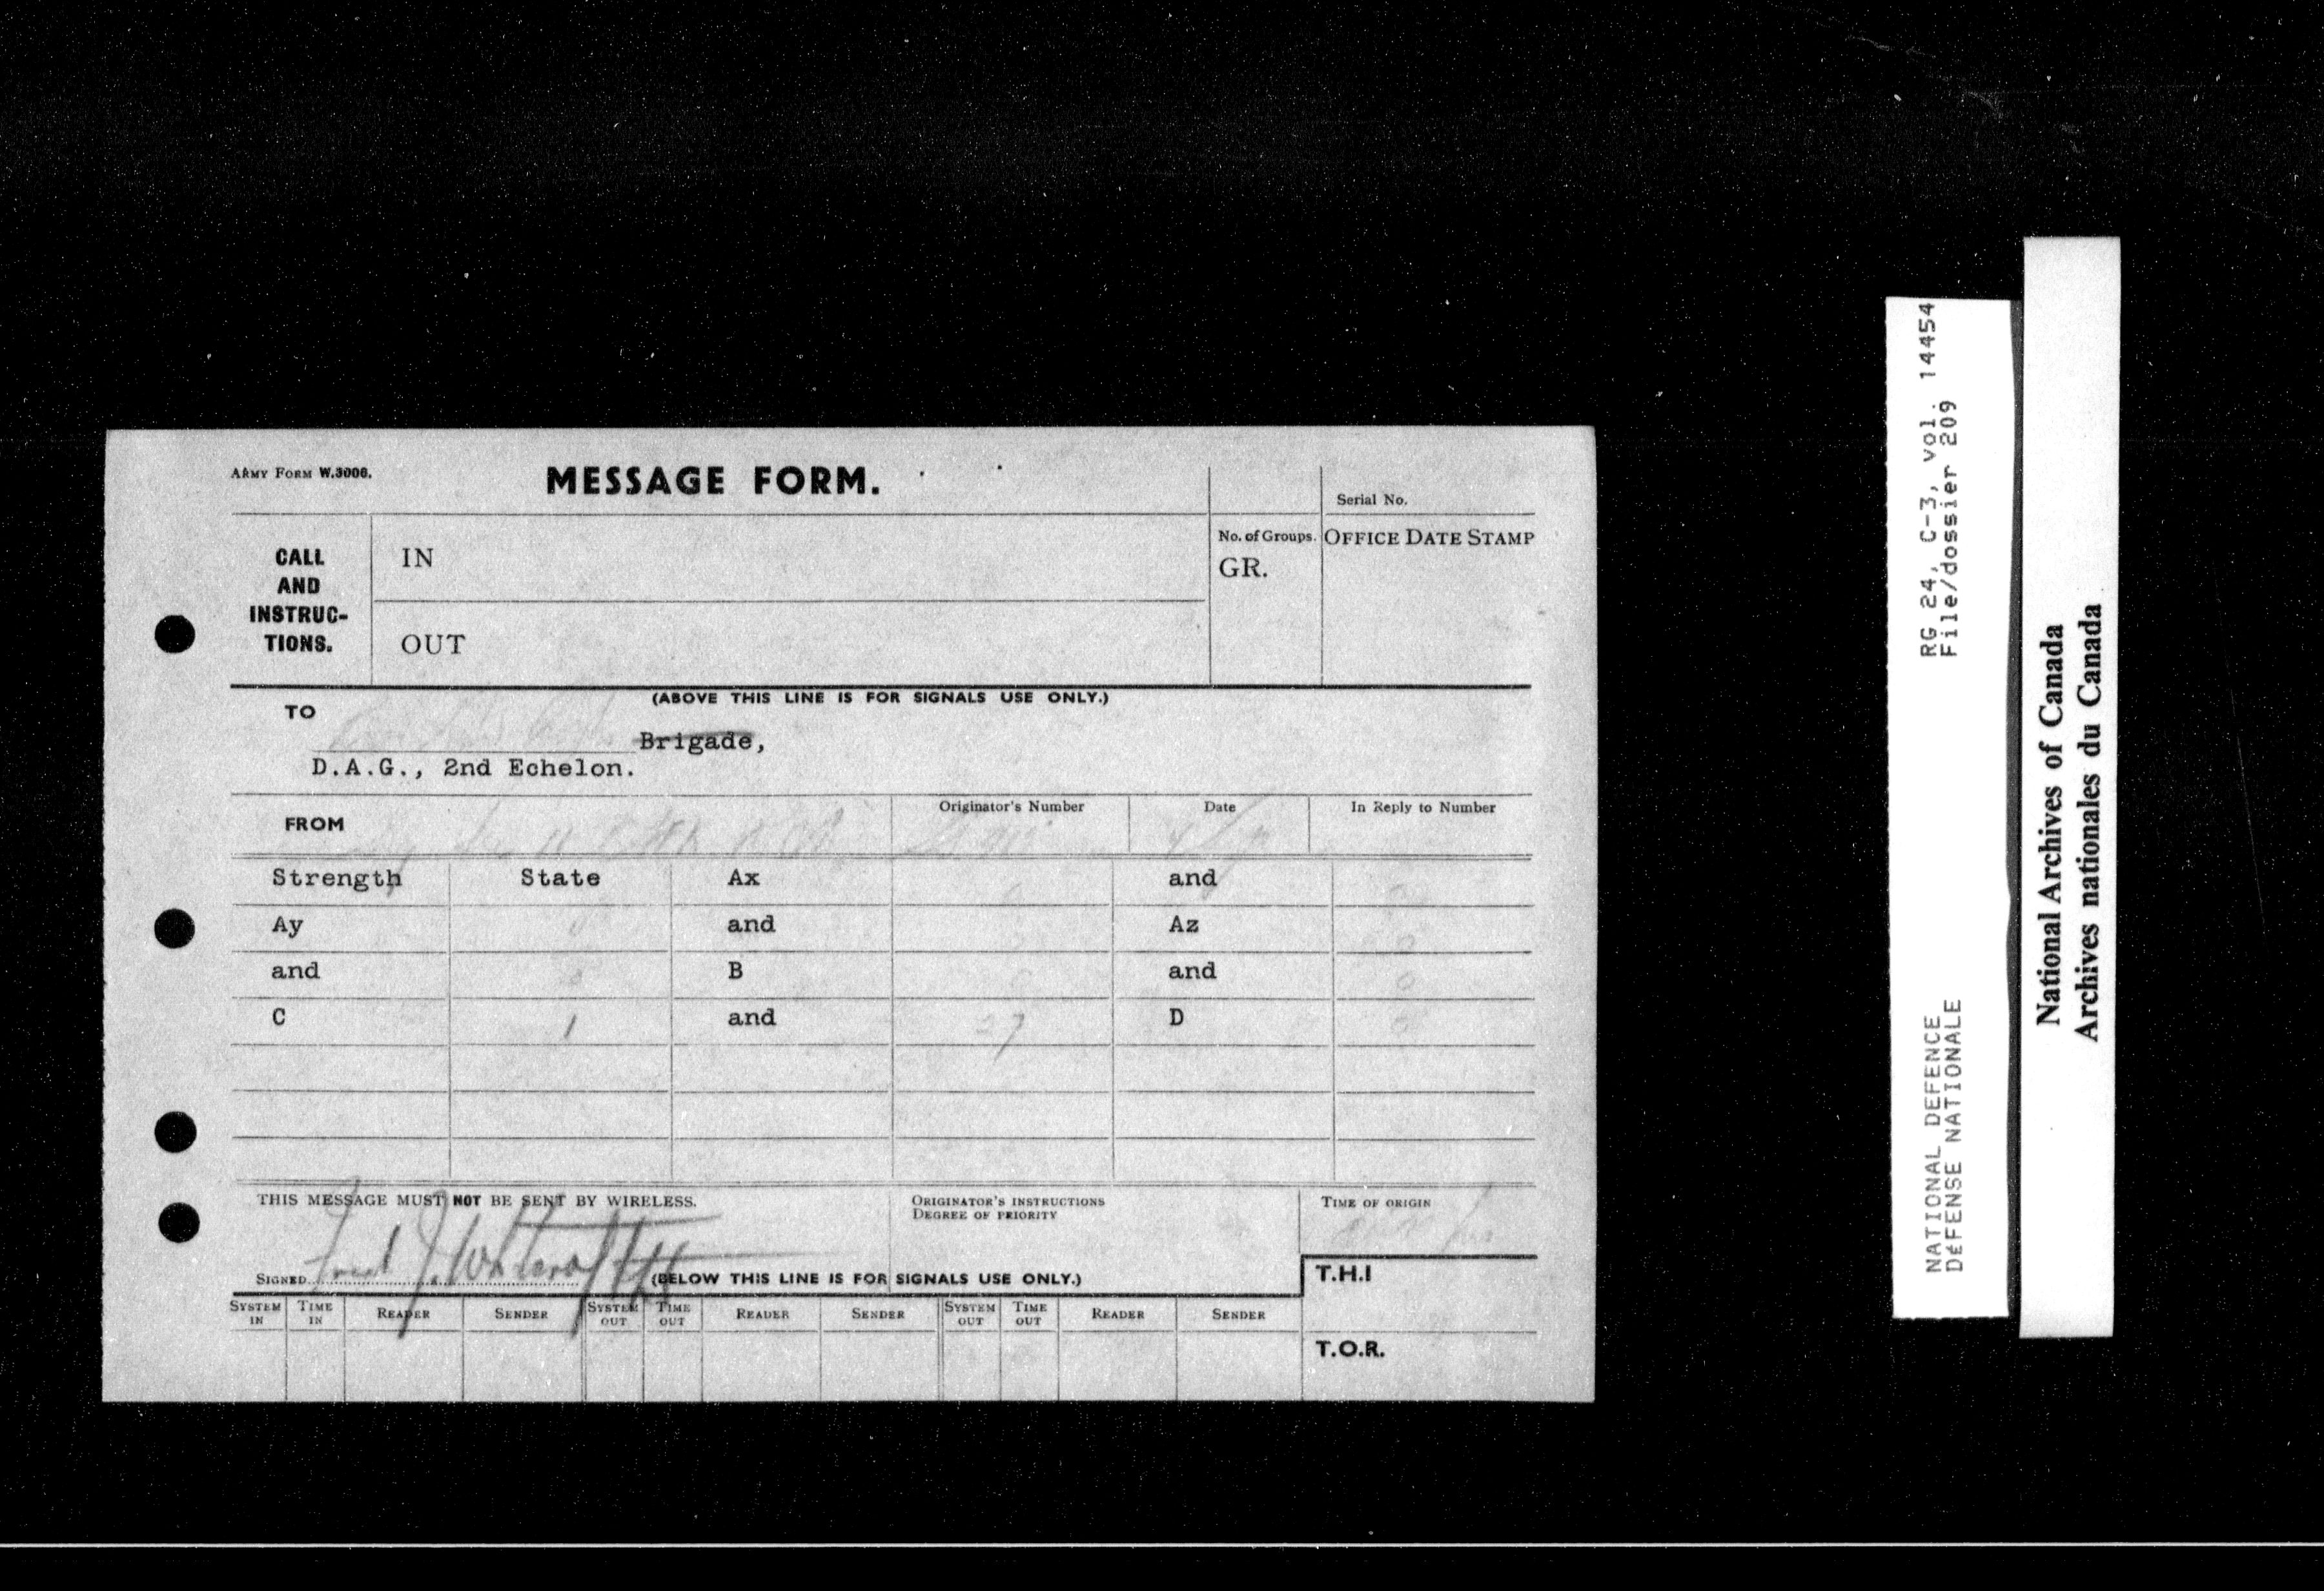 ARMY FORM W.3006.
MESSAGE FORM.
Serial No.
CALL
AND
INSTRUC-
TIONS.
IN
OUT
No. of Groups.
GR.
OFFICE DATE STAMP
(ABOVE THIS LINE IS FOR SIGNALS USE ONLY.)
TO
Brigade,
D.A.G., 2nd Echelon.
FROM
Originator's Number
Date
In Reply to Number
Strength State Ax and
Ay and Az 0
and B and 0
C 1 and 27 D
THIS MESSAGE MUST NOT BE SENT BY WIRELESS.
ORIGINATOR'S INSTRUCTIONS
DEGREE OF PRIORITY
TIME OF ORIGIN
SIGNED
(BELOW THIS LINE IS FOR SIGNALS USE ONLY.)
T.H.I
SYSTEM IN TIME IN READER SENDER SYSTEM OUT TIME OUT READER SENDER SYSTEM OUT TIME OUT READER SENDER
T.O.R.
RG 24, C-3, vol. 14454
File/dossier 209
NATIONAL DEFENCE
DéFENSE NATIONALE
National Archives of Canada
Archives nationales du Canada